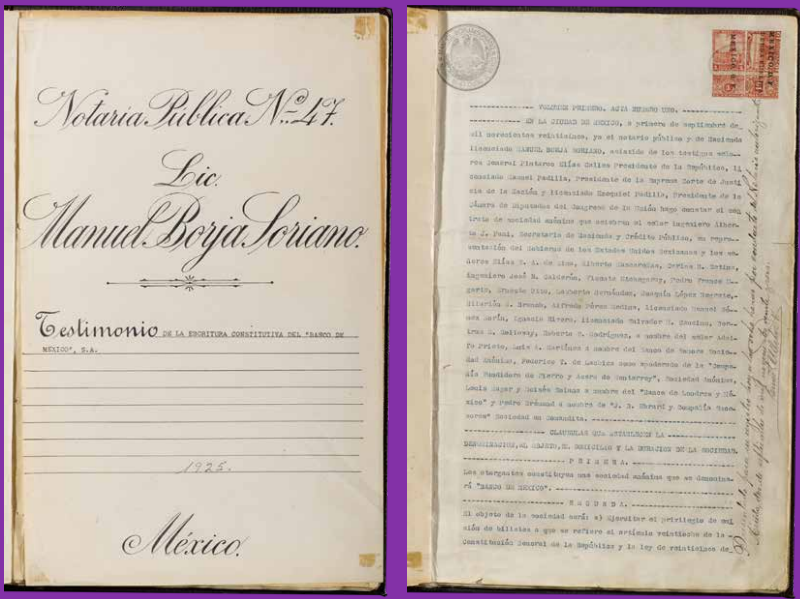 Notaría Pública No. 47.
Lic.
Manuel Borja Soriano.
Testimonio DE LA ESCRITURA CONSTITUTIVA DEL "BANCO DE
MEXICO", S.A.
1925.
México.
VOLUMEN PRIMERO. ACTA NUMERO UNO.
EN LA CIUDAD DE MEXICO, a primero de septiembre de
mil novecientos veinticinco, yo el notario público y de Hacienda
licenciado MANUEL BORJA SORIANO, asistido de los testigos
General Plutarco Elías Calles Presidente de la República, li
cenciado Manuel Padilla, Presidente de la Suprema Corte de Justi
cia de la Nación y licenciado Ezequiel Padilla, Presidente de la
Cámara de Diputados del Congreso de la Unión hago constar el con
trato de sociedad anónima que celebran el señor ingeniero Alber
to J. Pani, Secretario de Hacienda y Crédito Público, en repre-
sentación del Gobierno de los Estados Unidos Mexicanos y los se
ñores Elías S. A. de Lima, Alberto Mascareñas, Carlos B. Zetina,
ingeniero José R. Calderón, Vicente Etchegaray, Pedro Franco
Ernesto Otto, Lamberto Hernández, Joaquín López
Hilarión N. Branch, Alfredo Pérez Medina, licenciado Manuel
Ignacio Rivero, licenciado Salvador M. Cancino,
Galloway, Roberto V. Rodríguez, a nombre del señor Adol
fo Prieto, Luis A. Martínez a nombre del Banco de Socie-
dad Anónima, Federico T. de Lachica como apoderado de la "Compa-
ñía Fundidora de Fierro y Acero de Monterrey", Sociedad Anónima,
a nombre del "Banco de Londres y Mé-
xico" y Pedro a nombre de "J. B. Ebrard y Compañía
Sociedad en Comandita.
CLAUSULAS QUE ESTABLECEN LA
DENOMINACION, EL OBJETO, EL DOMICILIO Y LA DURACION DE LA SOCIEDAD.
PRIMERA.
Los otorgantes constituyen una sociedad anónima que se denomina-
rá "BANCO DE MEXICO".
SEGUNDA.
El objeto de la sociedad será: a) Ejercitar el privilegio de emi
sión de billetes a que se refiere el artículo veintiocho de la
Constitución General de la República y la ley de veinticinco de